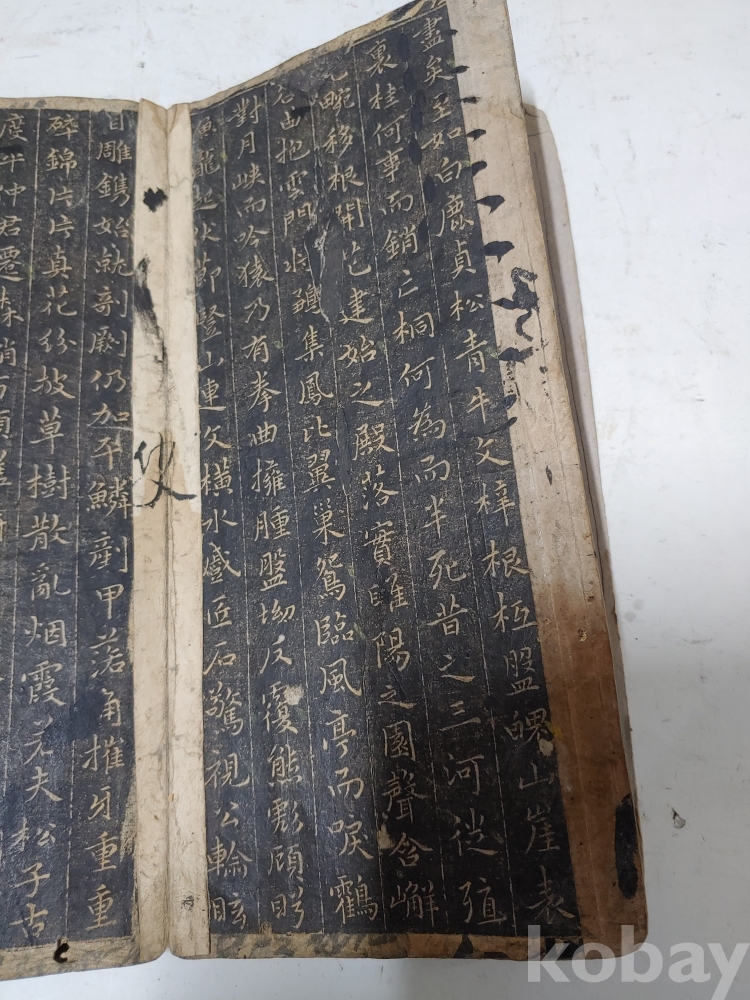 盡矣至如白鹿貞松青牛文梓根柢盤魄山崖表
裏桂何事而銷亡桐何為而半死昔之三河徙殖
九畹移根開花建始之殿落實睢陽之園聲含嶰
谷曲抱雲門將雛集鳳比翼巢鴛臨風亭而唳鶴
對月峽而吟猿乃有拳曲擁腫盤坳反覆熊彪顧盼
魚龍起伏節豎山連文橫水蹙匠石驚視公輸眩
目雕鐫始就剞劂仍加平鱗剷甲落角摧牙重重
碎錦片片真花紛披草樹散亂烟霞若夫松子古
度平仲君遷森梢百頃槎
kobay